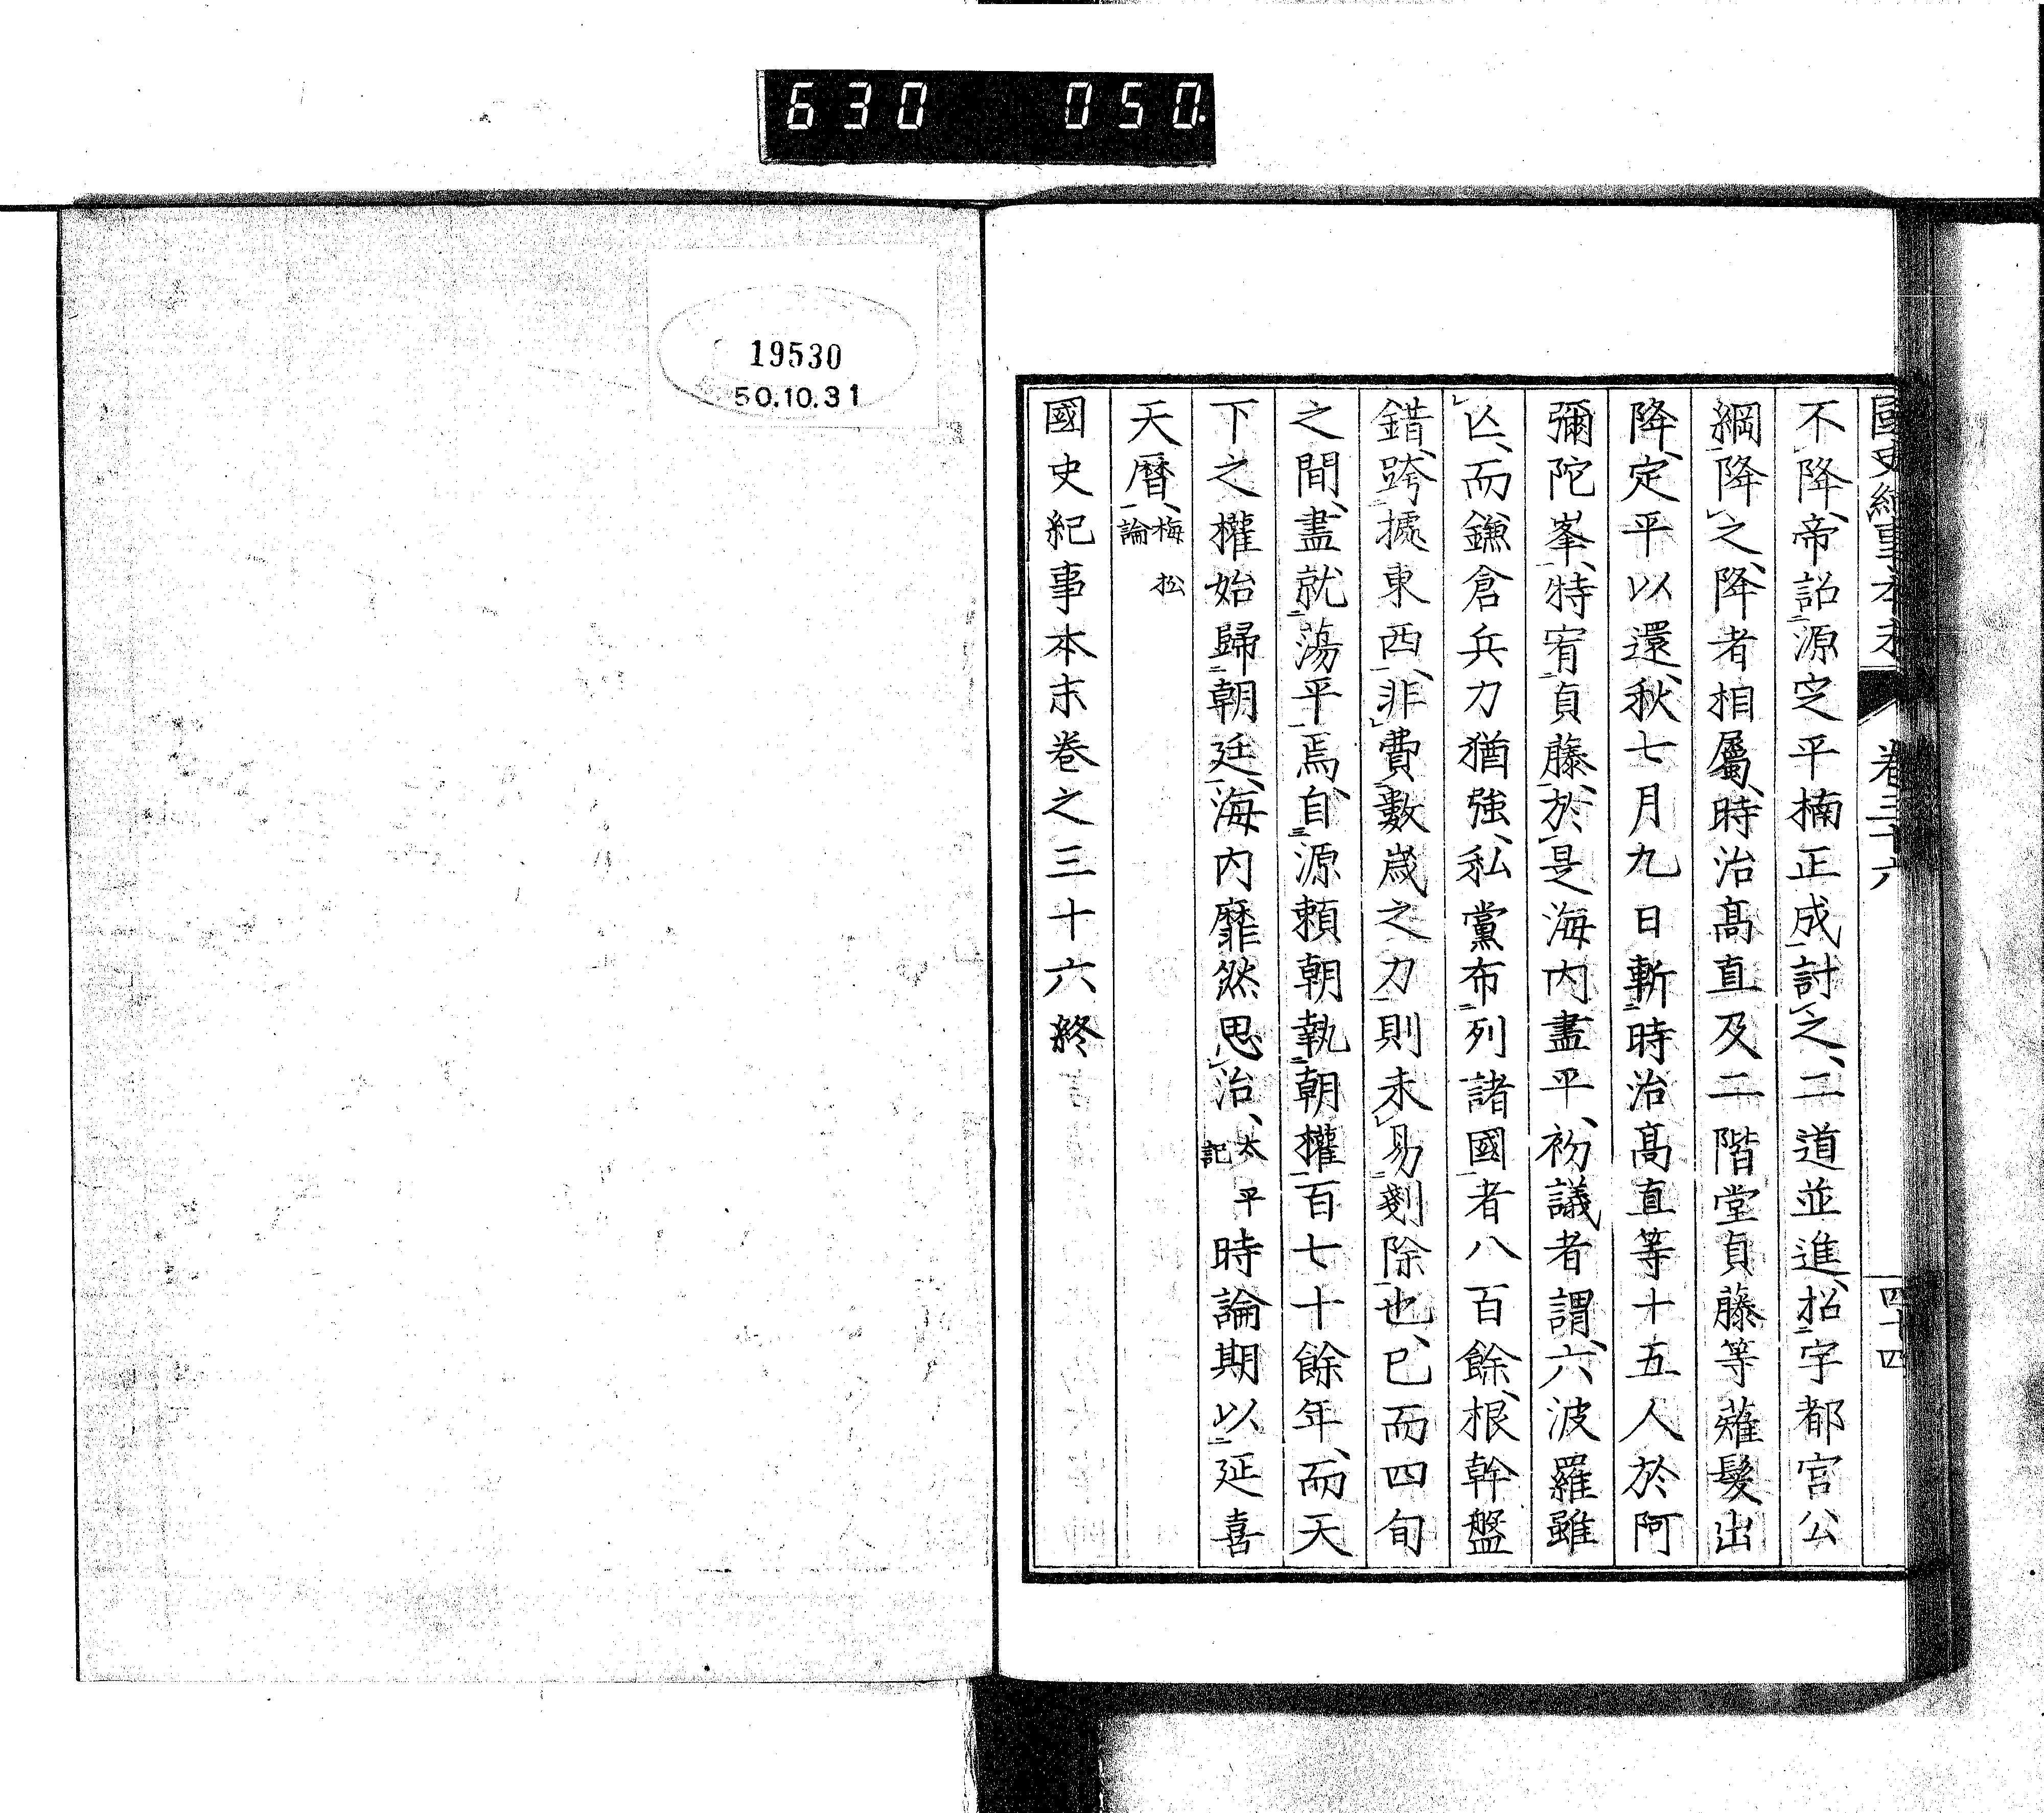 630 050.
國史紀事本末 卷三十六 四十四
不降、帝詔源定平楠正成討之、二道並進、招宇都宮公
綱降之、降者相屬、時治高直及二階堂貞藤等薙髮出
降、定平以還、秋七月九日斬時治高直等十五人於阿
彌陀峯、特宥貞藤、於是海内盡平、初議者謂、六波羅雖
亾、而鎌倉兵力猶強、私黨布列諸國者八百餘、根幹盤
錯、跨據東西、非費數歳之力則未易剗除也、已而四旬
之間、盡就蕩平焉、自源賴朝執朝權百七十餘年、而天
下之權始歸朝廷、海内靡然思治、太平記 時論期以延喜
天曆、梅松論
國史紀事本末卷之三十六終
19530
50.10.31